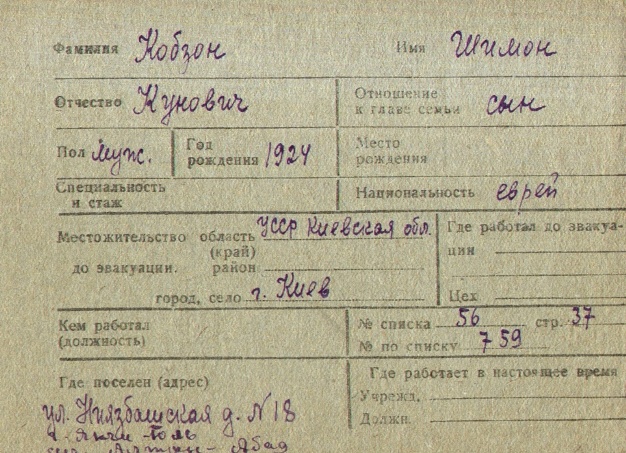 Фамилия Кобзон Имя Шимон
Отчество Кунович Отношение к главе семьи сын
Пол муж. Год рождения 1924 Место рождения
Специальность и стаж Национальность еврей
Местожительство область УССР Киевская обл. Где работал до эвакуа-
(край) ции
до эвакуации. район
город, село г. Киев Цех
Кем работал № списка 56 стр. 37
(должность) № по списку 759
Где поселен (адрес) Где работает в настоящее время
ул. Ниязбашская д. N 18 Учрежд.
г. Янги-Юль Должн.
Абад